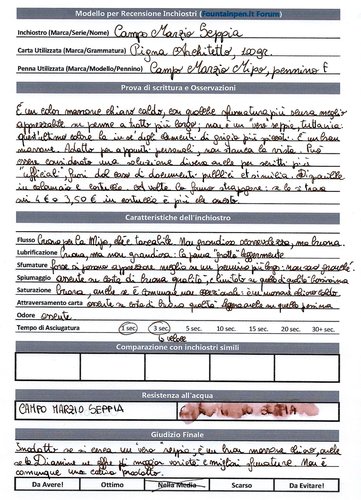 Modello per Recensione Inchiostri (Fountainpen.it Forum)
Inchiostro (Marca/Serie/Nome) Campo Marzio Seppia
Carta Utilizzata (Marca/Grammatura) Pigna Architetto,
Penna Utilizzata (Marca/Modello/Pennino) Campo Marzio Mipo, pennino F
Prova di scrittura e Osservazioni
È un color marrone chiaro caldo, con qualche sfumatura più scura meglio
apprezzabile su penne a tratto più largo; mai è un vero seppia, tuttavia
marrone. Adatto per appunti personali, non stanca la vista. Può
essere considerato una soluzione diversa anche per scritti più
"ufficiali", fuori dal caso di documenti pubblici et similia. Disponibile
in calamaio e cartucce
Caratteristiche dell'inchiostro
Flusso buono per la Mipo, che è tarabile. Non grandiosa scorrevolezza, ma buona.
Lubrificazione buona, ma non grandiosa: la penna gratta leggermente
Sfumature forse si possono apprezzare meglio su un pennino più largo; non sono granché.
Spiumaggio assente su carta di buona qualità; è limitato su quella di qualità bassissima
Saturazione buona, anche se è comunque non eccezionale: è un marrone chiaro caldo.
Attraversamento carta assente su carta di buona qualità leggero anche su quella pessima
Odore assente.
Tempo di Asciugatura 1 sec. 3 sec. 5 sec. 10 sec. 15 sec. 20 sec. 30+ sec.
è veloce
Comparazione con inchiostri simili
Resistenza all'acqua
CAMPO MARZIO SEPPIA
Giudizio Finale
Inadatto se si cerca un vero seppia; è un buon marrone chiaro, anche
se la Diamine ne offre di maggior varietà e migliori sfumature. Ma è
comunque un ottimo prodotto.
Da Avere! Ottimo Nella Media Scarso Da Evitare!